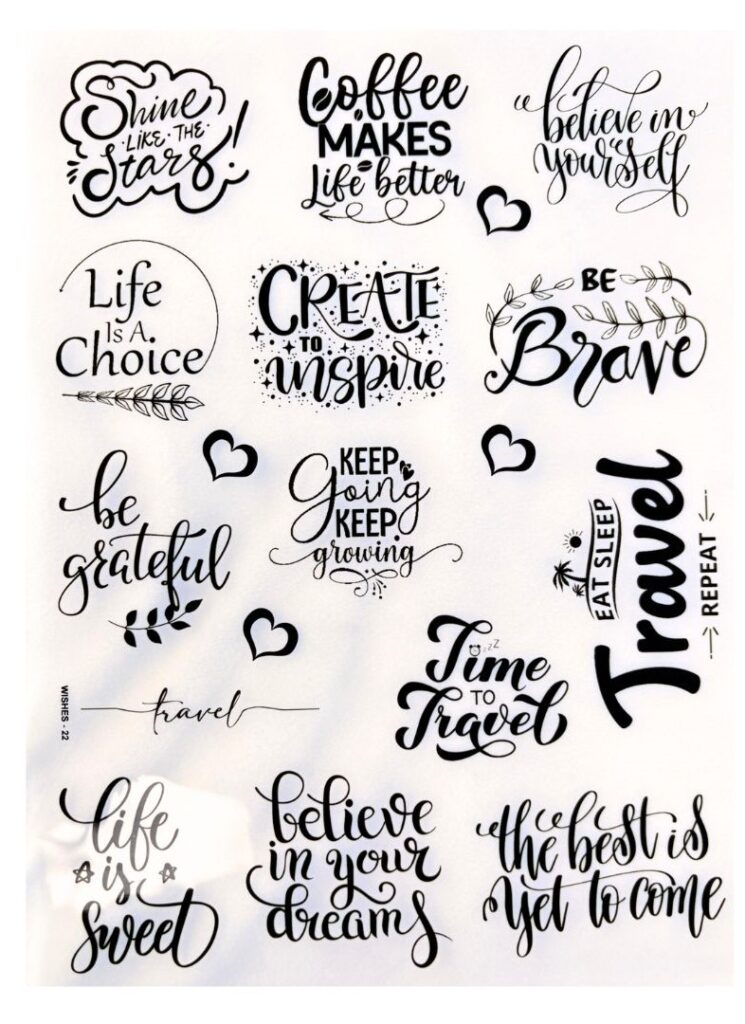 Shine
LIKE THE
Stars!
Coffee
MAKES
Life better
believe in
yourself
Life
Is A
Choice
CREATE
TO
inspire
BE
Brave
be
grateful
KEEP
Going
KEEP
growing
EAT SLEEP
Travel
REPEAT
travel
WISHES - 22
zzZ
Time
TO
Travel
life
is
sweet
believe
in your
dreams
the best is
yet to come